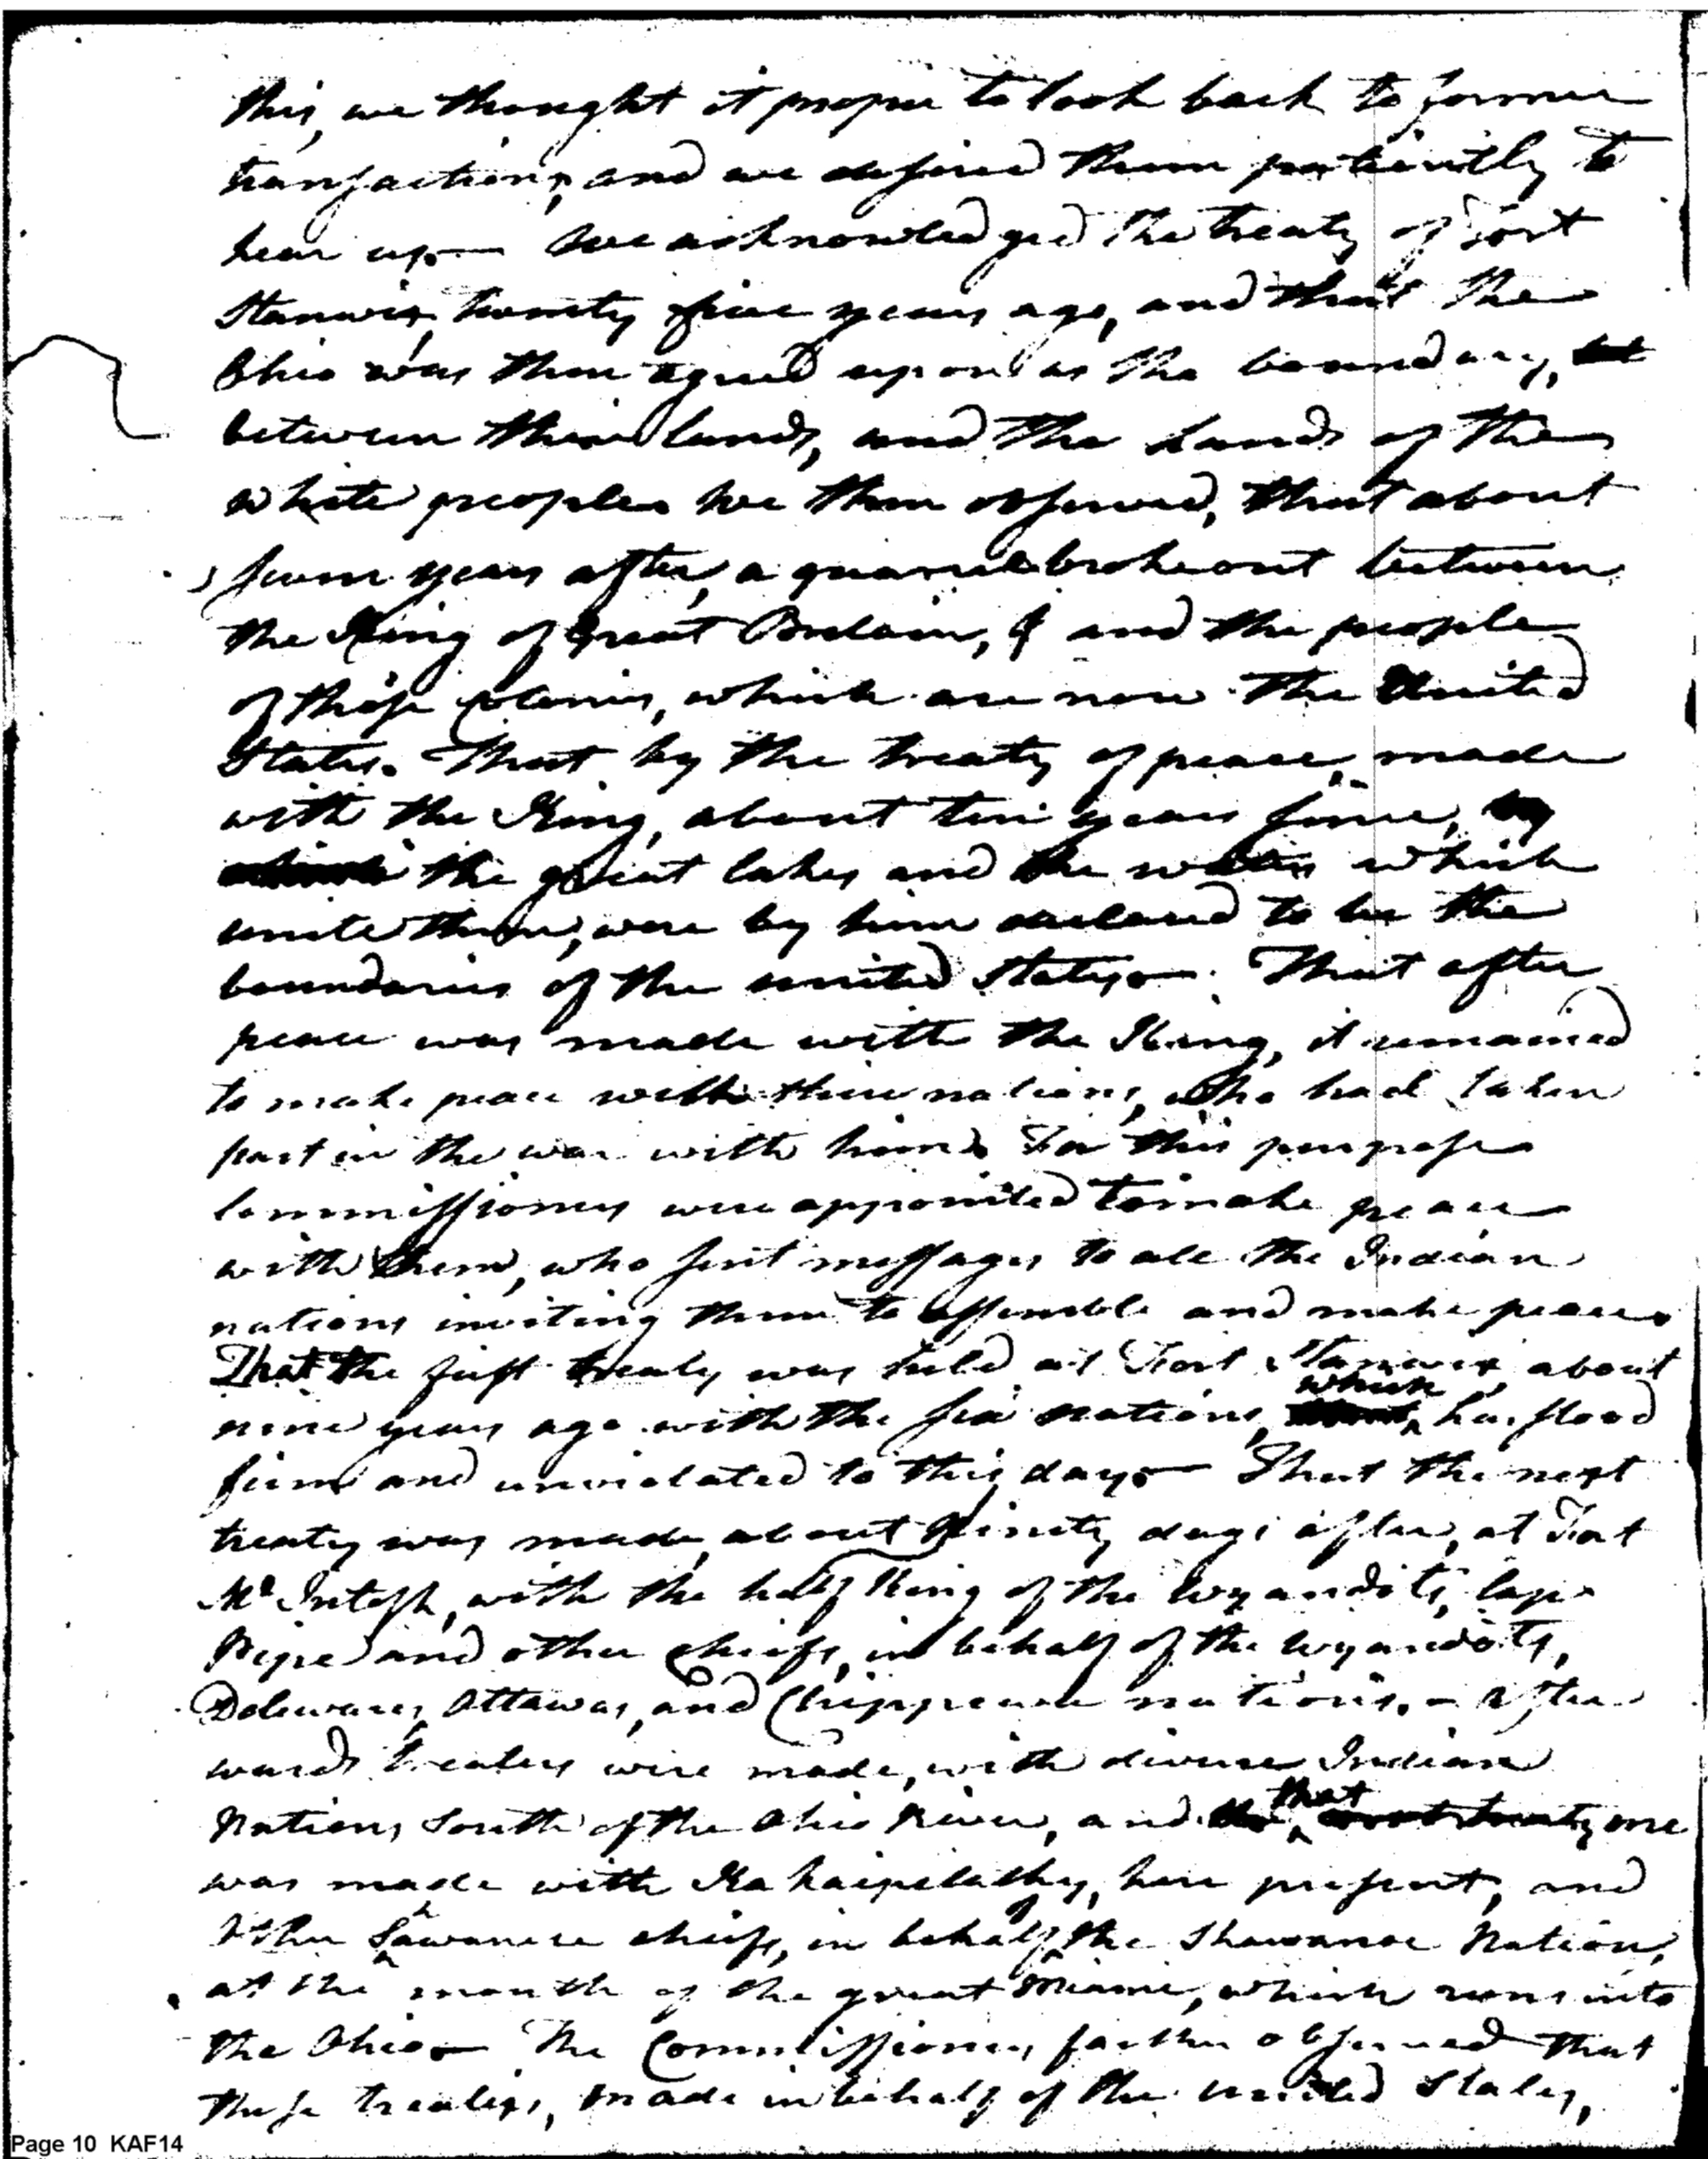 this, we thought it proper to look back to former
transactions, and we desired them patiently to
hear us. We acknowledged the treaty of Fort
Stanwix, twenty five years ago, and that the
Ohio was then agreed upon as the boundary,
between their lands, and the Lands of the
white people. We then observed, that about
seven years after, a quarrel broke out between
the King of Great Britain, & and the people
of those colonies, which are now the United
States. That by the treaty of peace, made
with the King, about ten years since, by
which the great lakes and the waters which
unite them, were by him declared to be the
boundaries of the united States. That after
peace was made with the King, it remained
to make peace with their nations, who had taken
part in the war with him. For this purpose
Commissioners were appointed to make peace
with them, who sent messages to all the Indian
nations inviting them to assemble and make peace.
That the first treaty was held at Fort Stanwix, about
which
nine years ago with the six nations, has stood
firm and unviolated to this day. That the next
treaty was made, about Ninety days after, at Fort
McIntosh, with the half King of the Wyandots, Capn
Pipe and other chiefs, in behalf of the Wyandots,
Delawares, Ottawas, and Chippewa nations. - After
wards treatys were made, with diverse Indian
that
Nations South of the Ohio River, and the, next treaty one
was made with Kakaipelathy, here present, and
other Shawanese chiefs, in behalf of the Shawanoe Nation,
at the mouth of the great Miami, which runs into
the Ohio. The Commissioners farther observed that
these treatys, made in behalf of the united States,
Page 10 KAF14